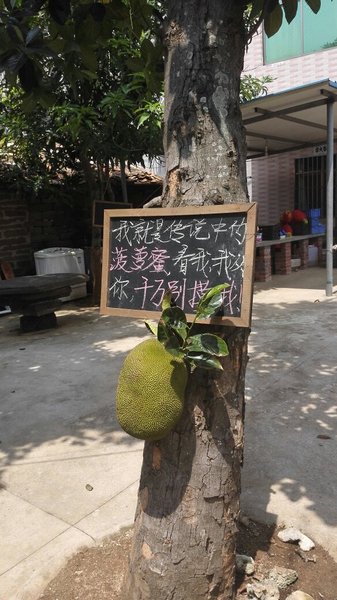 我就是传说中的
菠萝蜜,看我,我
你,千万别摸我